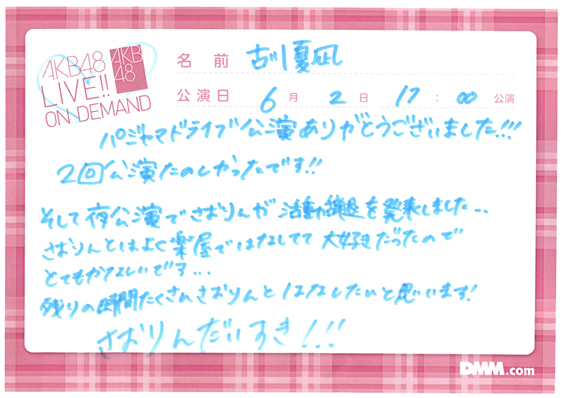 AKB48
LIVE!!
ON DEMAND
AKB
48
名前 古川夏凪
公演日 6月2日 17:00公演
パジャマドライブ公演ありがとうございました!!!
2回公演たのしかったです!!
そして夜公演でさおりんが活動辞退を発表しました...
さおりんとはよく楽屋ではなしてて大好きだったので
とてもかなしいです...
残りの時間たくさんさおりんとはなしたいと思います!
さおりんだいすき!!!
DMM.com